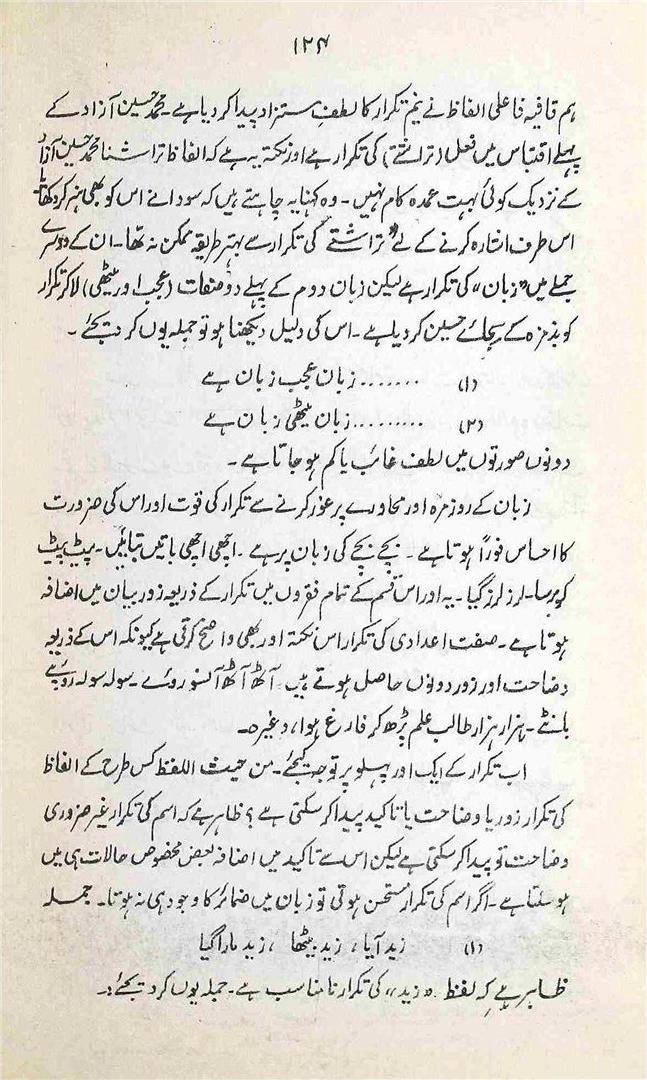 ۱۲۴
ہم قافیہ فاعلی الفاظ نے نیم تکرار کا لطف مستزاد پیدا کر دیا ہے۔ محمد حسین آزاد کے
پہلے اقتباس میں فعل (تراشتے) کی تکرار ہے اور نکتہ یہ ہے کہ الفاظ تراشنا محمد حسین آزاد
کے نزدیک کوئی بہت عمدہ کام نہیں۔ وہ کہنا یہ چاہتے ہیں کہ سودا نے اس کو بھی ہنر کر دکھایا
اس طرف اشارہ کرنے کے لئے "تراشتے" کی تکرار سے بہتر طریقہ ممکن نہ تھا۔ ان کے دوسرے
جملے میں "زبان" کی تکرار ہے لیکن زبان دوم کے پہلے دو صفات (عجب اور میٹھی) لا کر تکرار
کو بدمزہ کے بجائے حسین کر دیا ہے۔ اس کی دلیل دیکھنا ہو تو جملہ یوں کر دیجئے۔
(۱) ....... زبان عجب زبان ہے
(۲) ......... زبان میٹھی زبان ہے
دونوں صورتوں میں لطف غائب یا کم ہو جاتا ہے۔
زبان کے روزمرہ اور محاورے پر غور کرنے سے تکرار کی قوت اور اس کی ضرورت
کا احساس فوراً ہوتا ہے۔ بچے بچے کی زبان پر ہے۔ اچھی اچھی باتیں بتائیں۔ پیٹ پیٹ
کر برسا۔ لرز لرز گیا۔ یہ اور اس قسم کے تمام فقروں میں تکرار کے ذریعہ زور بیان میں اضافہ
ہوتا ہے۔ صفت اعدادی کی تکرار اس نکتہ اور بھی واضح کرتی ہے کیونکہ اس کے ذریعہ
وضاحت اور زور دونوں حاصل ہوتے ہیں۔ آٹھ آٹھ آنسو روئے۔ سولہ سولہ روپے
بانٹے۔ ہزار ہزار طالب علم پڑھ کر فارغ ہوا، وغیرہ۔
اب تکرار کے ایک اور پہلو پر توجہ کیجئے۔ من حیث اللفظ کس طرح کے الفاظ
کی تکرار زور یا وضاحت یا تاکید پیدا کر سکتی ہے؟ ظاہر ہے کہ اسم کی تکرار غیر ضروری
وضاحت تو پیدا کر سکتی ہے لیکن اس سے تاکید میں اضافہ بعض مخصوص حالات ہی میں
ہو سکتا ہے۔ اگر اسم کی تکرار مستحسن ہوتی تو زبان میں ضمائر کا وجود ہی نہ ہوتا۔ جملہ
(۱) زید آیا، زید بیٹھا، زید مارا گیا
ظاہر ہے کہ لفظ "زید" کی تکرار نامناسب ہے۔ جملہ یوں کر دیجئے:۔